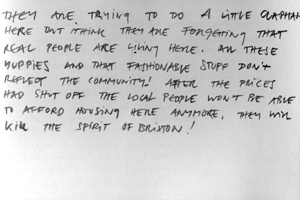 THEY ARE TRYING TO DO A LITTLE CLAPHAM
HERE BUT I THINK THEY ARE FORGETTING THAT
REAL PEOPLE ARE LIVING HERE. ALL THESE
YUPPIES AND THAT FASHIONABLE STUFF DON'T
REFLECT THE COMMUNITY! AFTER THE PRICES
HAD SHUT OFF THE LOCAL PEOPLE WON'T BE ABLE
TO AFFORD HOUSING HERE ANYMORE, THEY WILL
KILL THE SPIRIT OF BRIXTON!